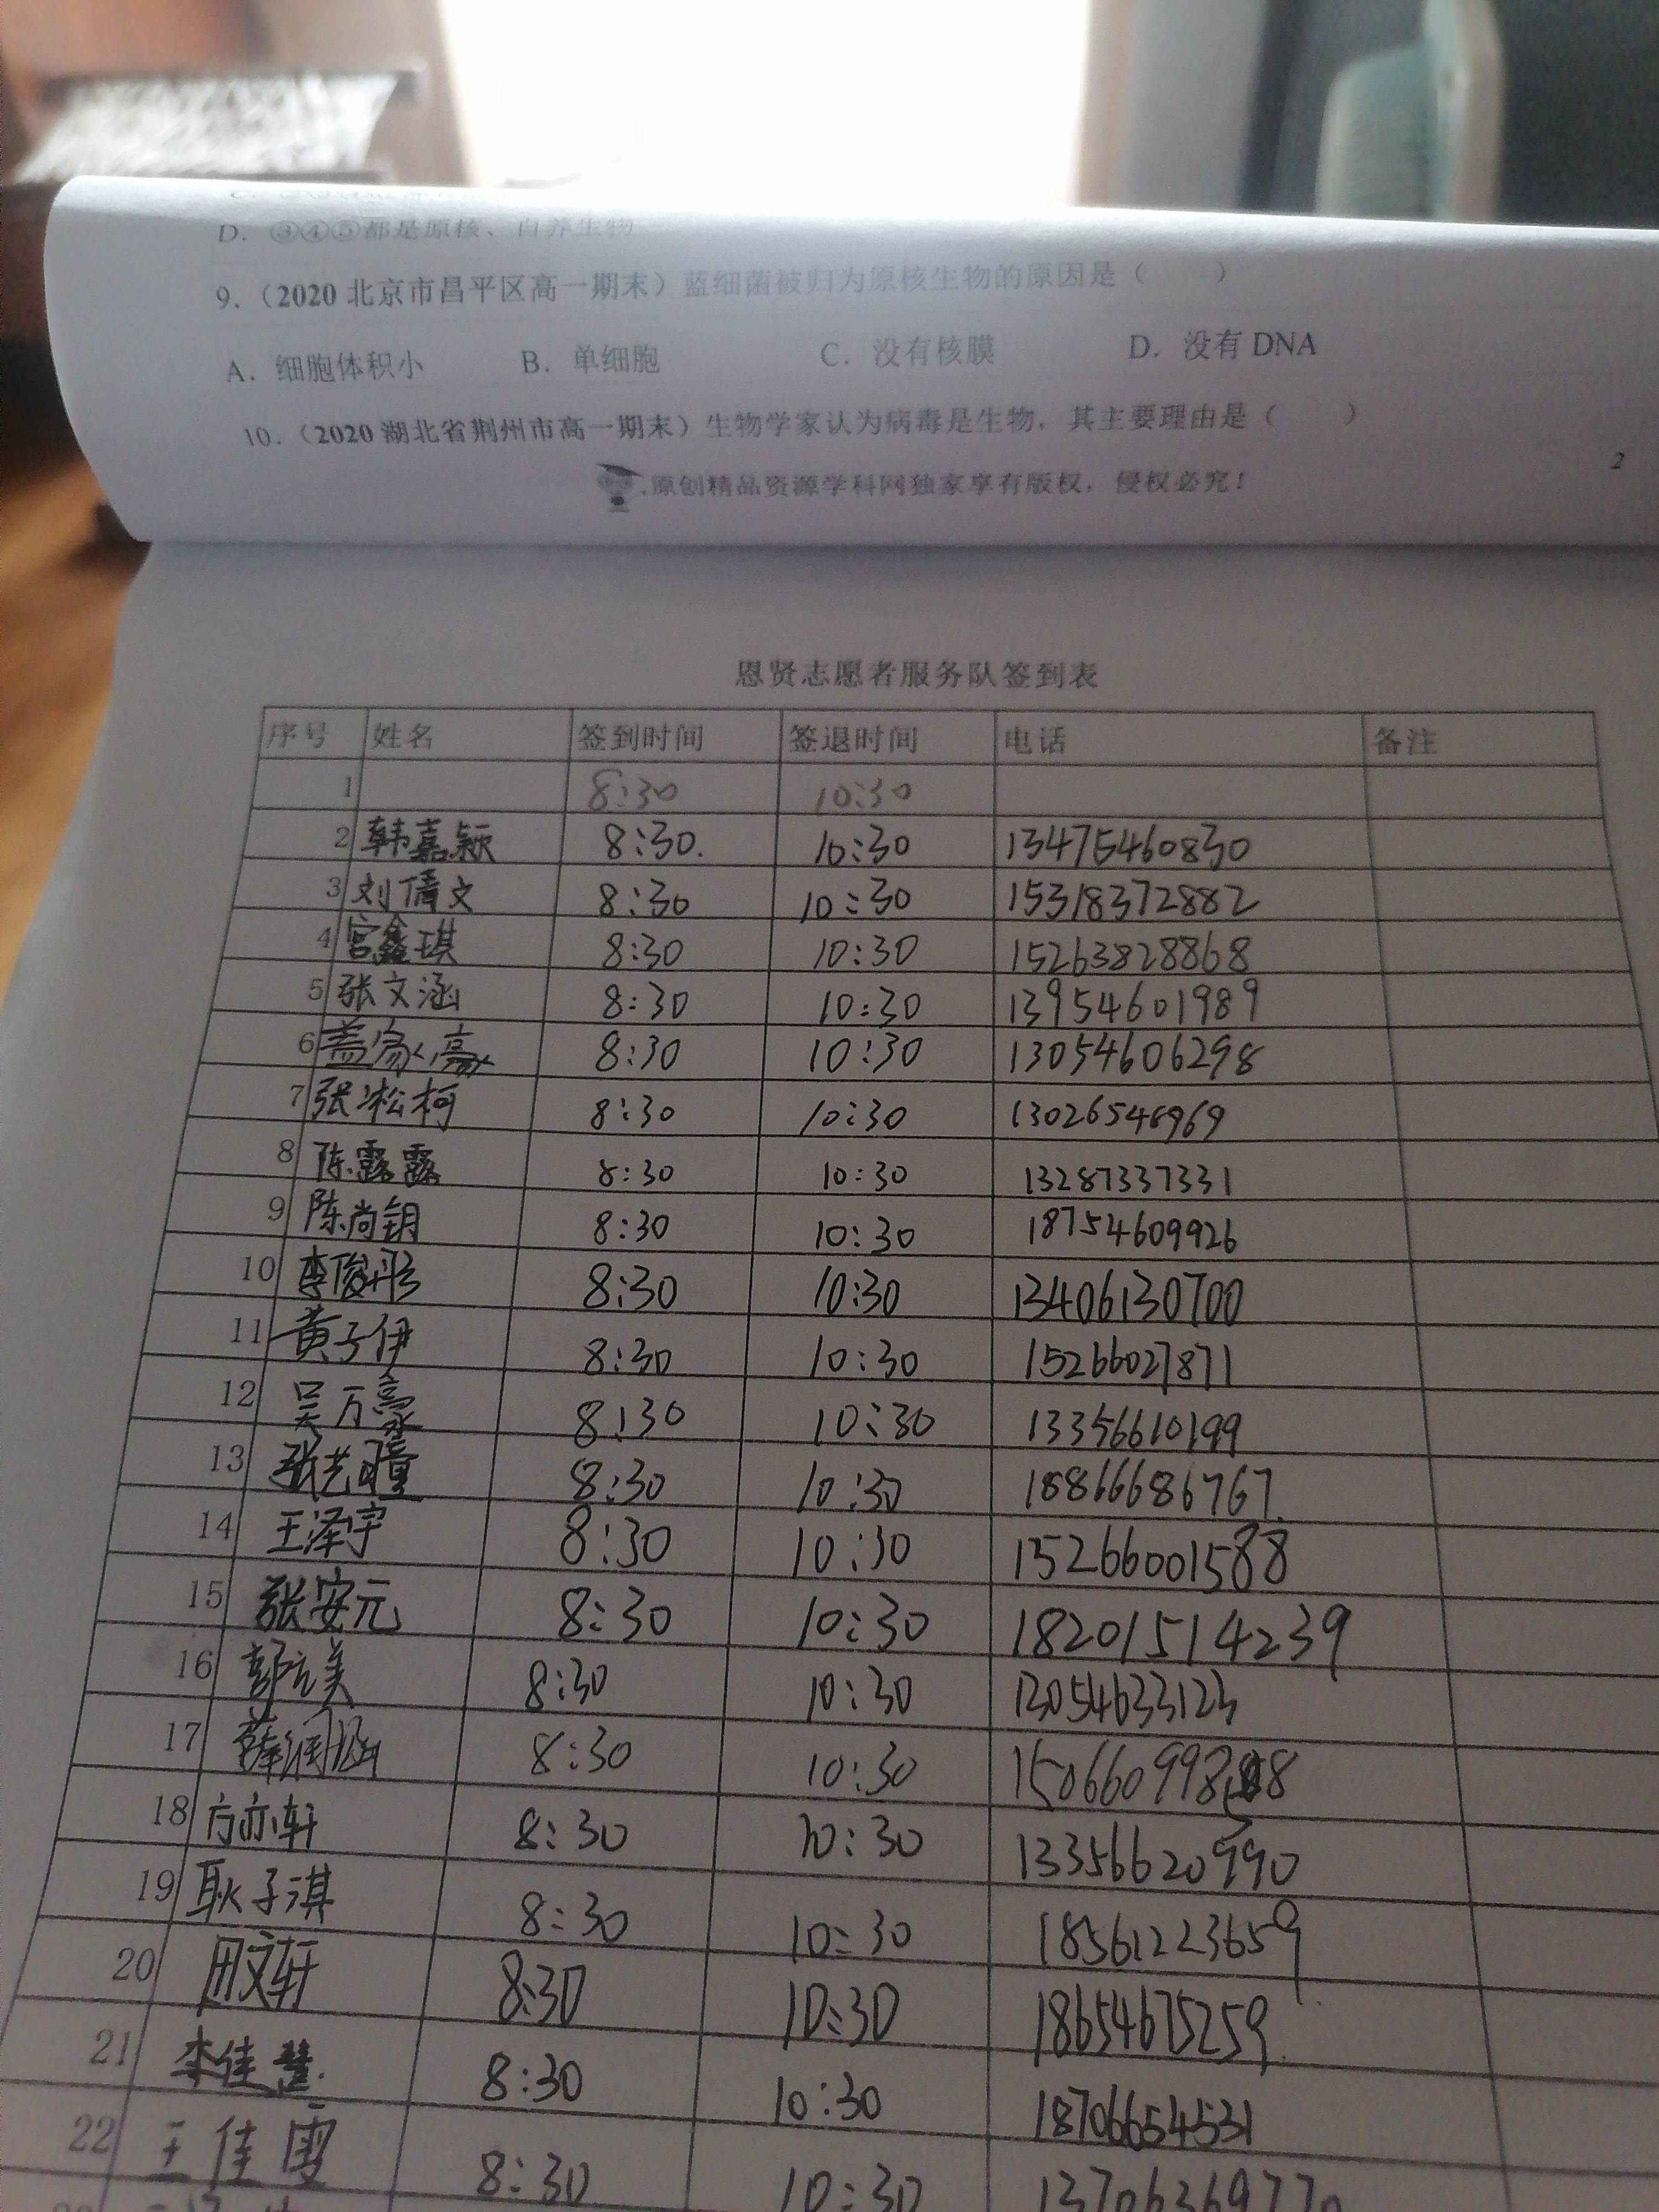 D. ③④⑤都是原核、自养生物
9.（2020 北京市昌平区高一期末）蓝细菌被归为原核生物的原因是（ ）
A. 细胞体积小 B. 单细胞 C. 没有核膜 D. 没有 DNA
10.（2020 湖北省荆州市高一期末）生物学家认为病毒是生物，其主要理由是（ ）
原创精品资源学科网独家享有版权，侵权必究！
2
恩贤志愿者服务队签到表
序号 姓名 签到时间 签退时间 电话 备注
1 8:30 10:30
2 韩嘉颖 8:30. 10:30 13475460830
3 刘倩文 8:30 10:30 15318372882
4 宫鑫琪 8:30 10:30 15263828868
5 张文涵 8:30 10:30 13954601989
6 盖 8:30 10:30 13054606298
7 张凇柯 8:30 10:30 13026548969
8 陈露露 8:30 10:30 13287337331
9 陈尚钥 8:30 10:30 18754609926
10 李俊彤 8:30 10:30 13406130700
11 黄子伊 8:30 10:30 15266027871
12 吴万豪 8:30 10:30 13356610199
13 张艺瞳 8:30 10:30 18866686767
14 王泽宇 8:30 10:30 15266001588
15 张安元 8:30 10:30 18201514239
16 8:30 10:30 13054633123
17 薛润涵 8:30 10:30
18 方亦轩 8:30 10:30 13356620990
19 耿子淇 8:30 10:30 18561223659
20 田文轩 8:30 10:30 18654675259
21 李佳慧 8:30 10:30 18706654531
22 王佳雯 8:30 10:30 13706369770